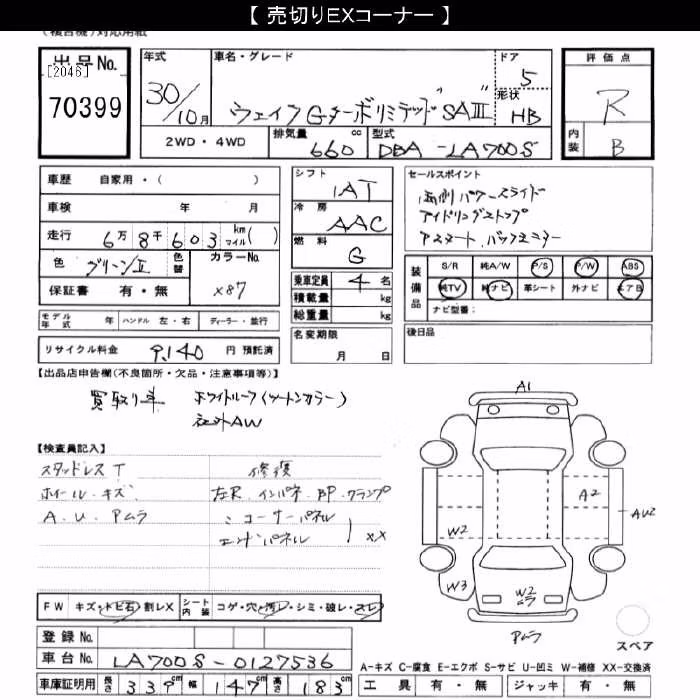 【 売切りEXコーナー 】
(複合機)対応用紙
出品No.
[2046]
70399
年式
30/10月
車名・グレード
ウェイクGターボリミテッド"SAⅢ"
ドア
5
形状
HB
2WD・4WD
排気量
660
cc
型式
DBA-LA700S
評価点
R
内装
B
車歴 自家用・( )
車検 年 月
走行 6万8千603 km マイル( )
色 グリーンⅡ 色替 カラーNo.
X87
保証書 有・無
モデル年式 年 ハンドル 左・右 ディーラー・並行
リサイクル料金 9,140 円 預託済
シフト
IAT
冷房
AAC
燃料
G
乗車定員 4 名
積載量 kg
総重量 kg
名変期限
月 日
セールスポイント
両側パワースライド
アイドリングストップ
アスマート バックモニター
装備品
S/R 純A/W P/S P/W ABS
純TV 純ナビ 革シート 外ナビ エアB
ナビ型番:
後日品
【出品店申告欄(不良箇所・欠品・注意事項等)】
買取り車 ホワイトルーフ(ツートンカラー)
社外AW
【検査員記入】
スタッドレスT
ホイール・キズ
A.U.Pムラ
修復
左R.インパネ.BP.クランプ
〃コーナーパネル
エンドパネル XX
FW キズ・トビ石・割レX
シート内装 コゲ・穴・汚レ・シミ・破レ・スレ
登録No.
車台No. LA700S-0127536
車庫証明用 長さ 339cm 幅 147cm 高さ 183cm
A1
A2
AU2
W2
W3
W2
ムラ
Pムラ
スペア
A-キズ C-腐食 E-エクボ S-サビ U-凹ミ W-補修 XX-交換済
工具 有・無 ジャッキ 有・無